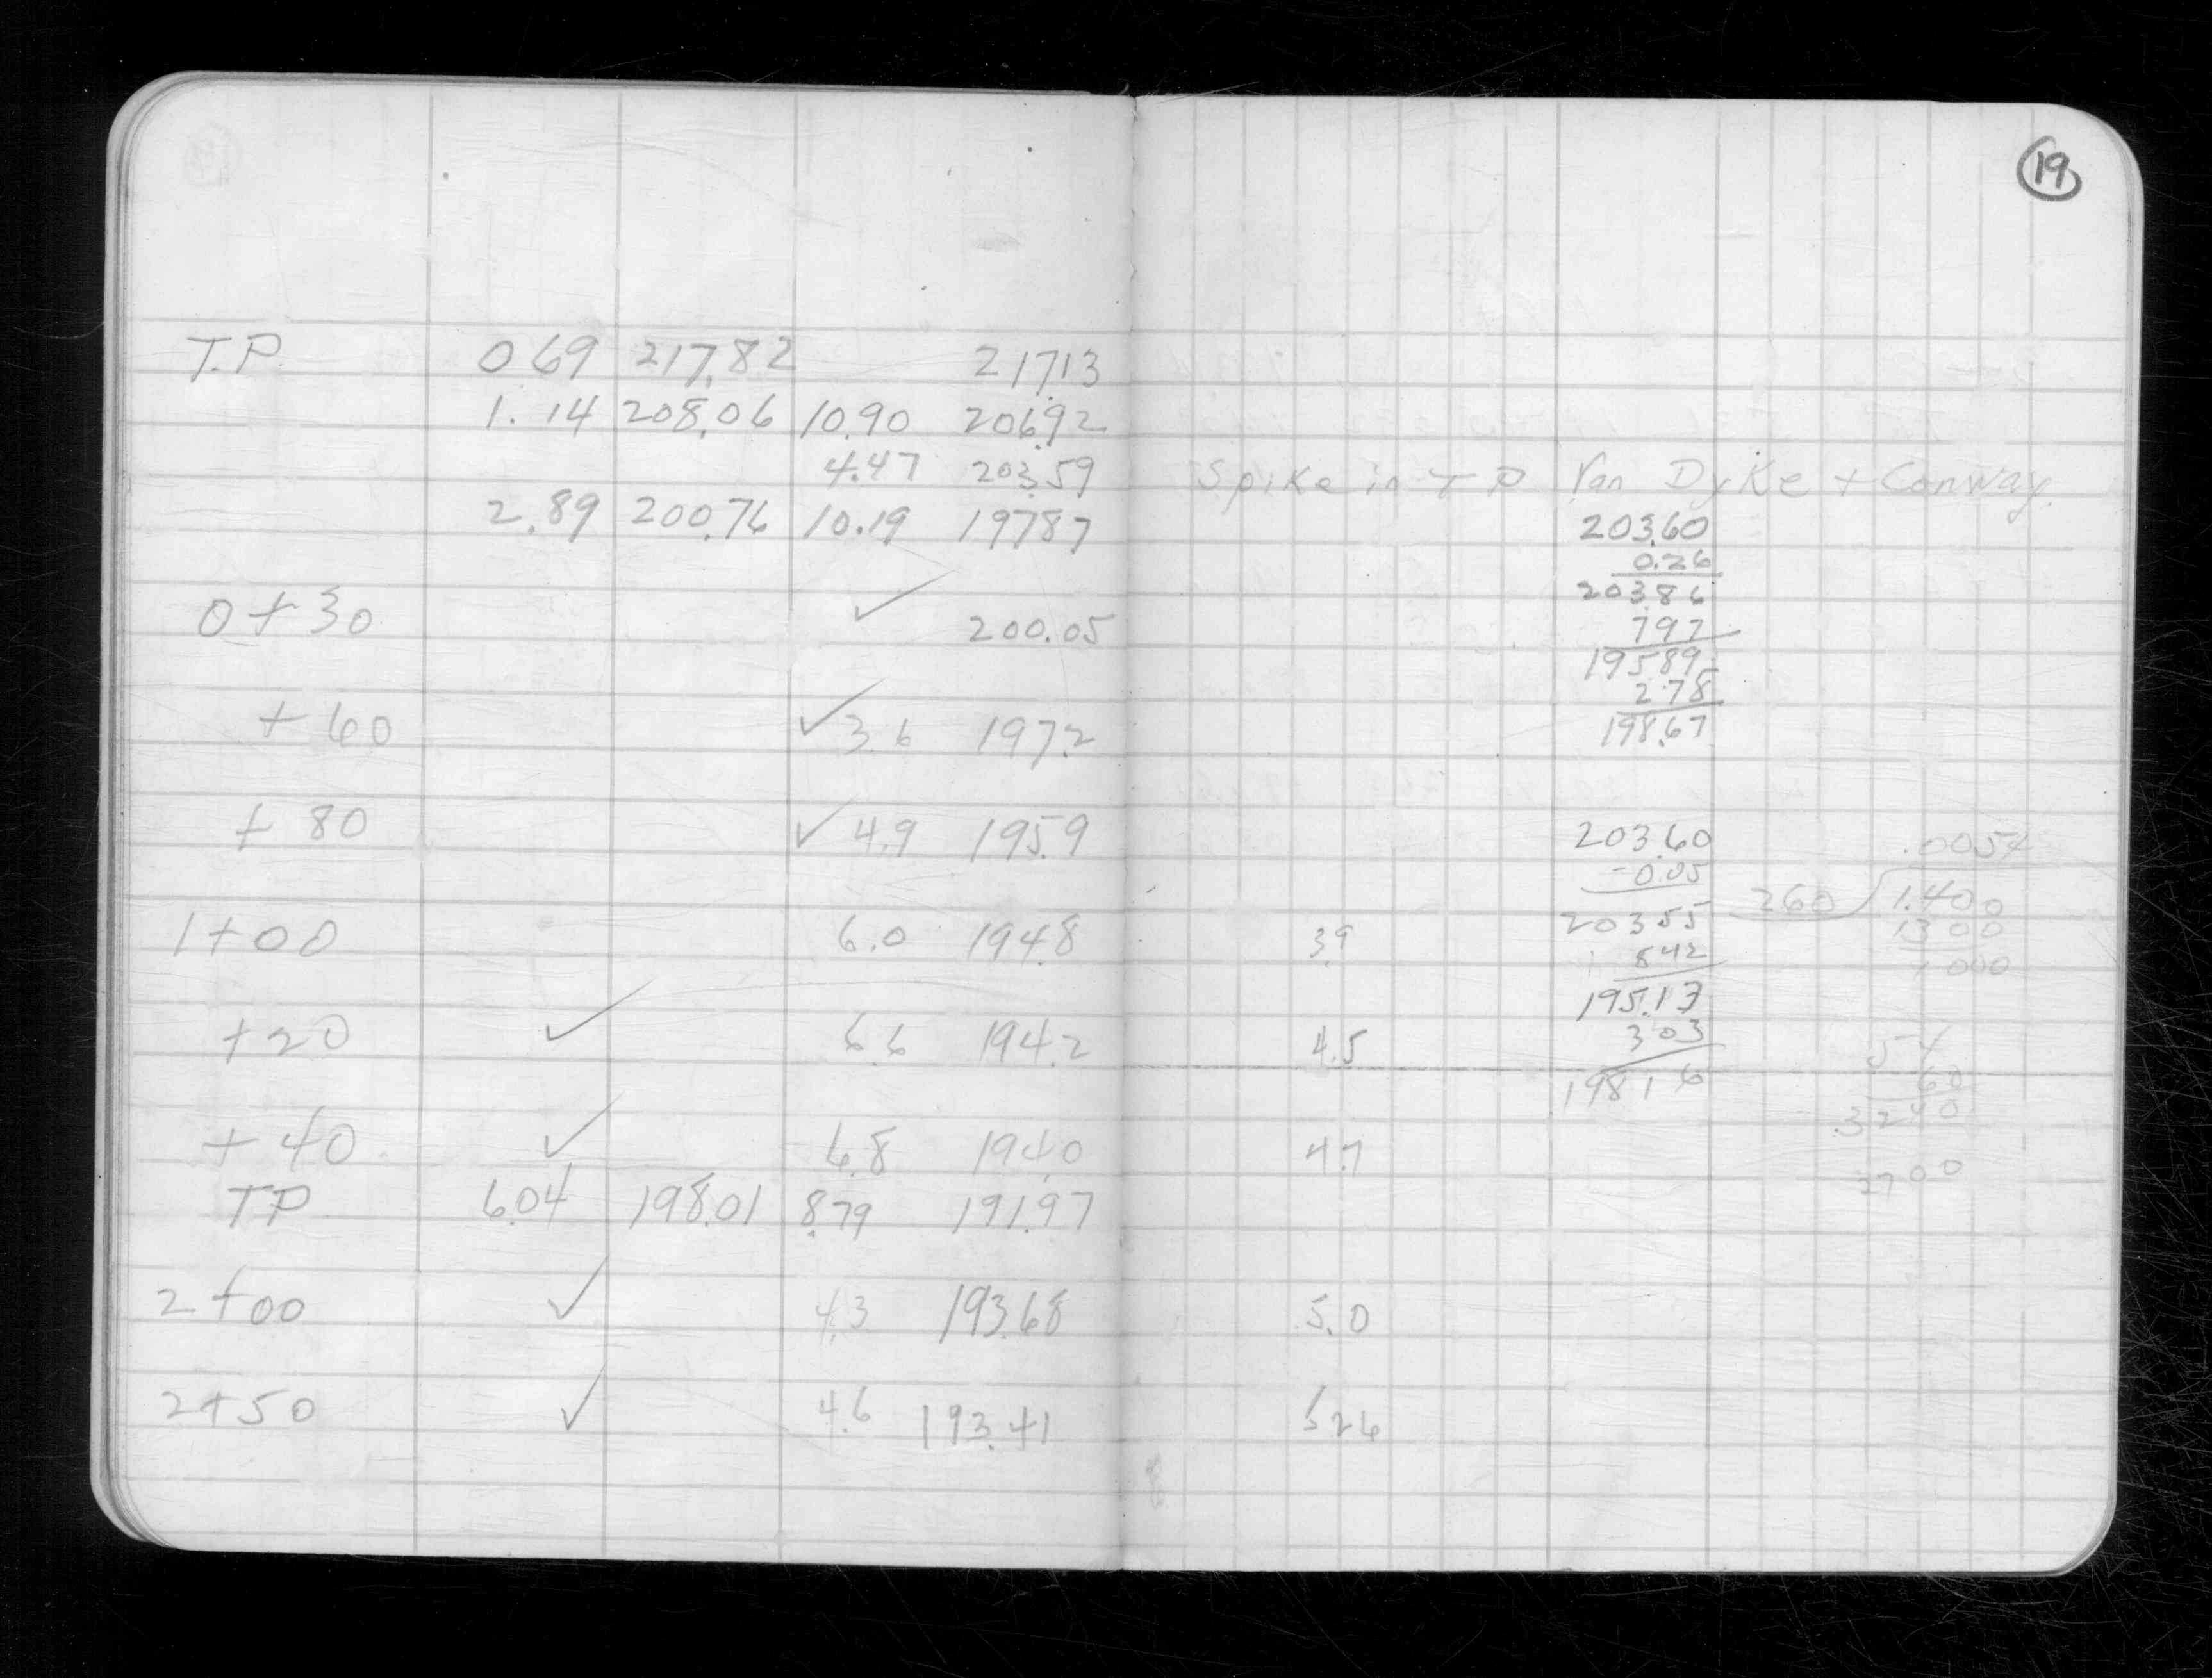 19
T.P. 0 69 217.82 217.13
1.14 208.06 10.90 206.92
4.47 203.59 Spike in T P Van Dyke + Conway
2.89 200.76 10.19 197 87
203.60
0.26
203 86
0+30 ✓ 200.05
7 97
195 89
2.78
198.67
+60 ✓ 3.6 197.2
+80 ✓ 4.9 195.9
203.60
-0.05
203 55
8 42
195.13
3 03
198 1 6
.0054
260 1.400
1300
1000
54
60
.3240
2700
1+00 6.0 194.8 3.9
+20 ✓ 6.6 194.2 4.5
+40 ✓ 6.8 194.0 4.7
TP 6.04 198.01 8.79 191.97
2+00 ✓ 4.3 193.68 5.0
2+50 ✓ 4.6 193.41 5 26